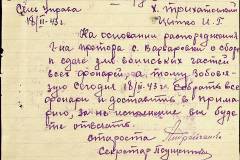 Сель Управа х. Трихатской
18/II-43 г. Цытко И. Г.
На основании распоряжения
1-на претора с. Варваровки о сборе
и сдаче для воинских частей
всех фонарей а тому
сегодня 18/II-43г. собрать все
фонари и доставить в прима-
рию, за не исполнение вы буде
те отвечать.
староста
Секретарь